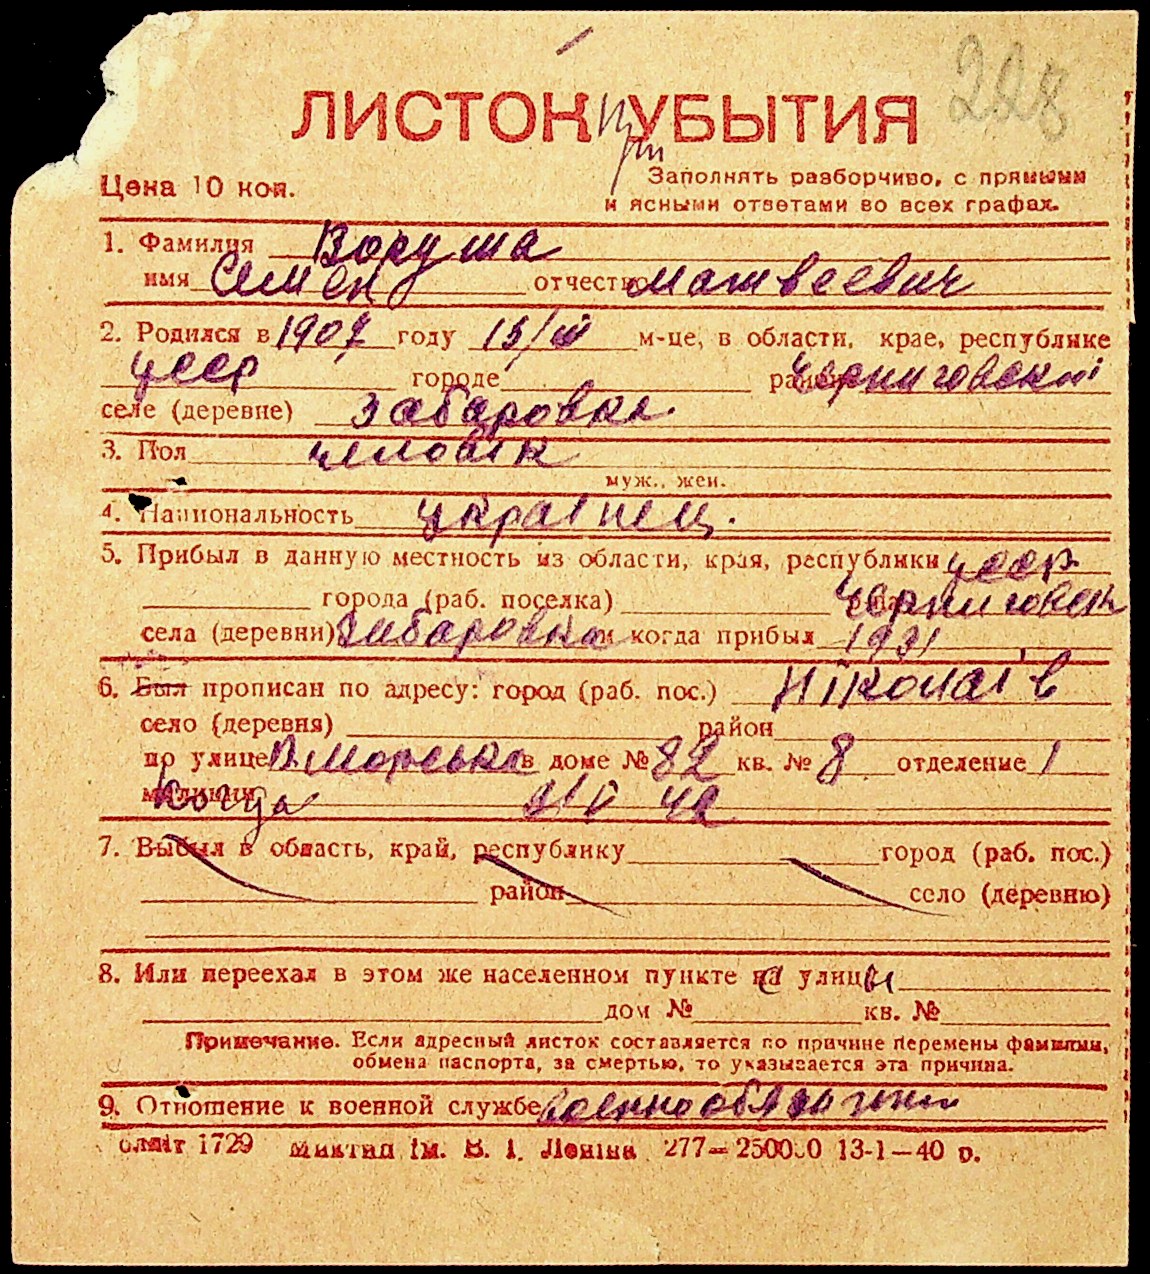 228
ЛИСТОК УБЫТИЯ
Цена 10 коп.
Заполнять разборчиво, с прямыми
и ясными ответами во всех графах.
1. Фамилия Воруша
имя Семен отчество Матвеевич
2. Родился в 1907 году 15/III м-це, в области, крае, республике
УССР городе районе Черниговскоі
селе (деревне) Забаровка
3. Пол человік
муж., жен.
4. Национальность украінец.
5. Прибыл в данную местность из области, края, республики УССР
города (раб. поселка)
села (деревни) Забаровка и когда прибыл 1931
6. Был прописан по адресу: город (раб. пос.) Ніколаів
село (деревня) район
по улице В. Морська в доме № 82 кв. № 8 отделение 1
милиции Когда
7. Выбыл в область, край, республику город (раб. пос.)
район село (деревню)
8. Или переехал в этом же населенном пункте с улицы
дом № кв. №
Примечание. Если адресный листок составляется по причине перемены фамилии,
обмена паспорта, за смертью, то указывается эта причина.
9. Отношение к военной службе
1729 Миктип ім. В. І. Леніна 277—250000 13-1—40 р.